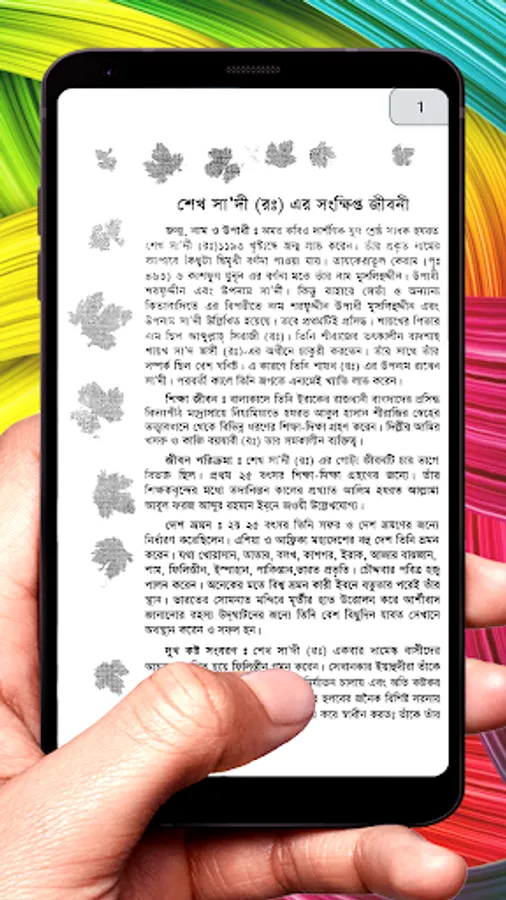 1
শেখ সা'দী (রঃ) এর সংক্ষিপ্ত জীবনী
জন্ম, নাম ও উপাধী : অমর কবিও দার্শনিক যুগ শ্রেষ্ঠ সাধক হযরত
শেখ সা'দী (রঃ)১১৯৩ খৃষ্টাব্দে জন্ম লাভ করেন। তাঁর প্রকৃত নামের
ব্যাপারে কিছুটা দ্বিমুখী বর্ণনা পাওয়া যায়। (পৃঃ
ও এর বর্ণনা মতে তাঁর নাম মুসলিহুদ্দীন। উপাধী
শরফুদ্দীন এবং উপনাম সা'দী। কিন্তু বাহারে ও অন্যান্য
কিতাবাদিতে এর বিপরীতে নাম শরফুদ্দীন উপাধী মুসলিহুদ্দীন এবং
উপনাম সা'দী উল্লিখিত হয়েছে। তবে প্রথমটিই প্রসিদ্ধ। শায়খের পিতার
নাম ছিল আব্দুল্লাহ্ সিরাজী (রঃ)। তিনি শীরাজের তৎকালীন বাদশাহ
শায়খ সা'দ জঙ্গী (রঃ)-এর অধীনে চাকুরী করতেন। তাঁর সাথে তাঁর
সম্পর্ক ছিল বেশ ঘনিষ্ট। এ কারণে তিনি শায়খ (রঃ) এর উপনাম রাখেন
সা'দী। পরবর্তী কালে তিনি জগতে এনামেই খ্যাতি লাভ করেন।
শিক্ষা জীবন : বাল্যকালে তিনি ইরাকের রাজধানী বাগদাদের প্রসিদ্ধ
বিদ্যাপীঠ মাদ্রাসায়ে নিযামিয়াতে হযরত আবুল হাসান শীরাজির স্নেহের
তত্ত্বাবধানে থেকে বিভিন্ন ধরণের শিক্ষা-দিক্ষা গ্রহণ করেন। দিল্লীর আমির
খসরু ও কাজি বয়যাবী (রঃ) তার সমকালীন ব্যক্তিত্ব।
জীবন পরিক্রমা : শেখ সা'দী (রঃ) এর গোটা জীবনটি চার ভাগে
বিভক্ত ছিল। প্রথম ২৫ বৎসর শিক্ষা-দিক্ষা গ্রহণের জন্যে। তাঁর
শিক্ষকবৃন্দের মধ্যে তদানিন্তন কালের প্রখ্যাত আলিম হযরত আল্লামা
আবুল ফরজ আব্দুর রহমান ইবনে জওযী উল্লেখযোগ্য।
দেশ ভ্রমন : ২য় ২৫ বৎসর তিনি সফর ও দেশ ভ্রমণের জন্যে
নির্ধারণ করেছিলেন। এশিয়া ও আফ্রিকা মহাদেশের বহু দেশ তিনি ভ্রমন
করেন। যথা খোরাসান, তাতার, বলখ, কাশগর, ইরাক, আজার বাইজান,
শাম, ফিলিস্তীন, ইস্পাহান, পাকিস্তান,ভারত প্রভৃতি। চৌদ্দবার পবিত্র হজ্ব
পালন করেন। অনেকের মতে বিশ্ব ভ্রমন কারী ইবনে বতুতার পরেই তাঁর
স্থান। ভারতের সোমনাত মন্দিরে মূর্ত্তীর হাত উত্তোলন করে আর্শীবাদ
জানানোর রহস্য উদ্ঘাটনের জন্যে তিনি বেশ কিছুদিন যাবত সেখানে
অবস্থান করেন ও সফল হন।
দুখ কষ্ট সংবরণ : শেখ সা'দী (রঃ) একবার দামেস্ক বাসীদের
হয়ে ফিলিস্তীন গমন করেন। সেখানকার ইয়াহুদীরা তাঁকে
চালায় এবং অতি কষ্টকর
হলবের জনৈক বিশিষ্ট সরদার
করে স্বাধীন করত: তাঁকে তাঁর